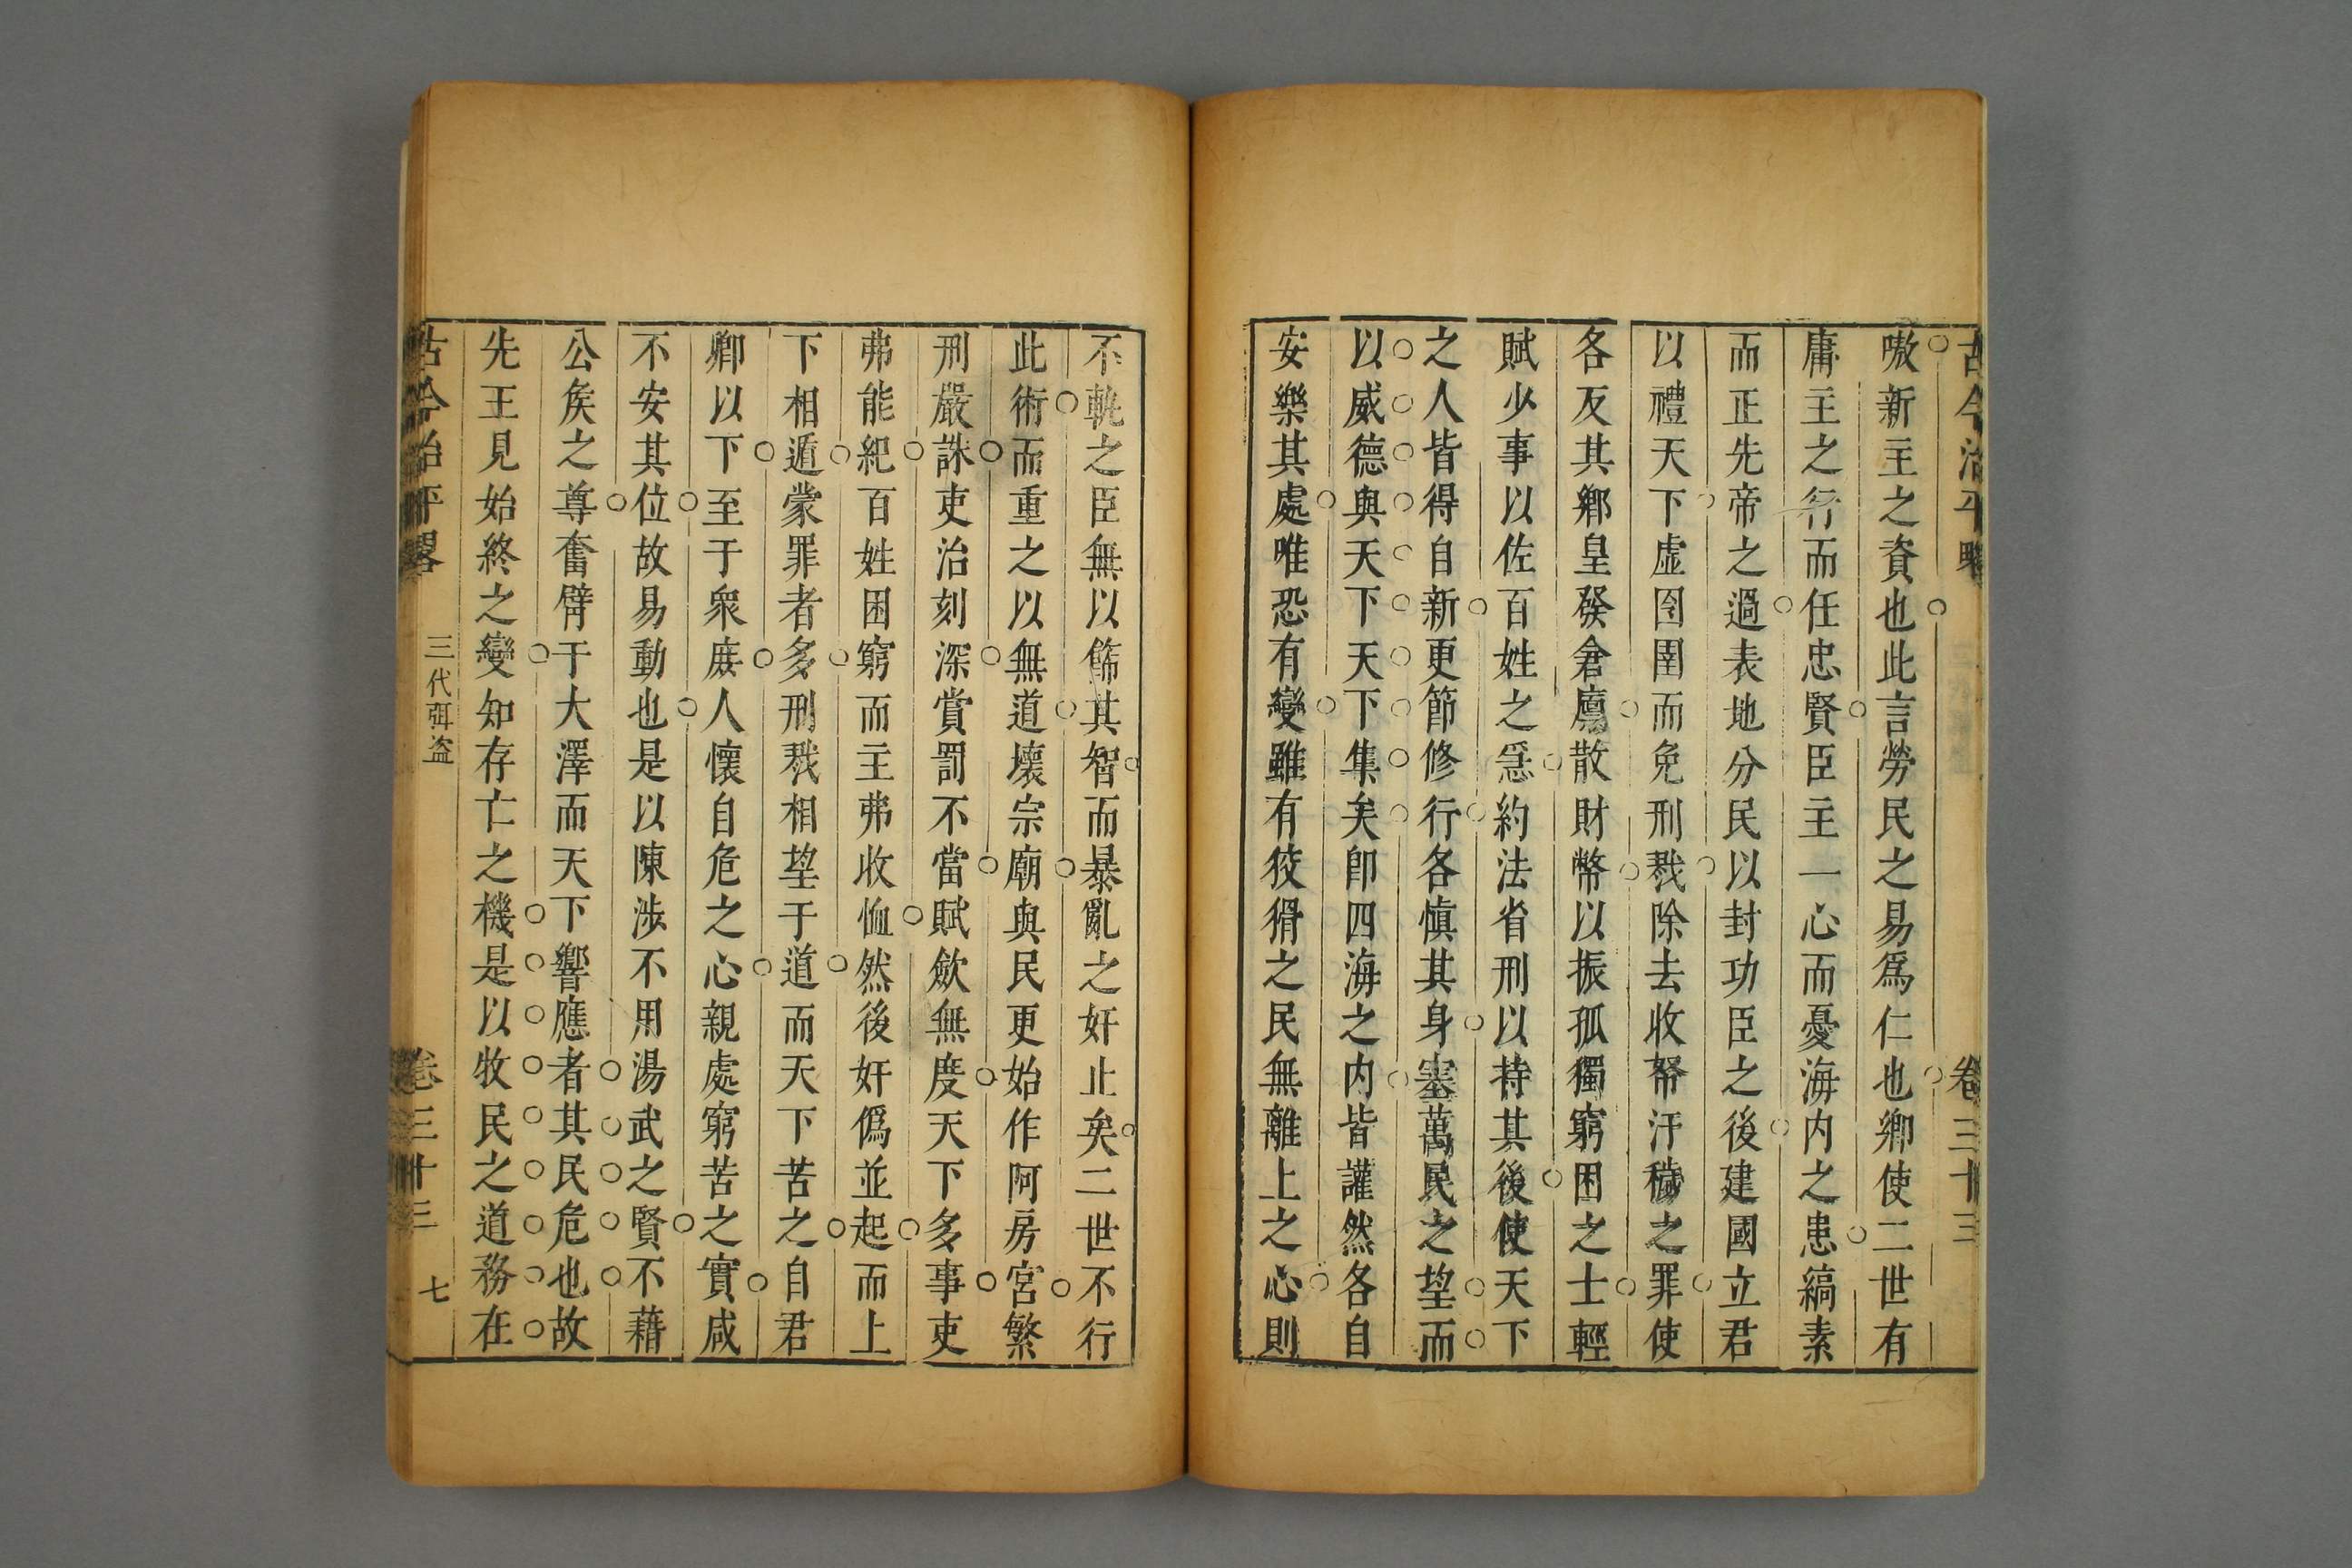 古今治平畧 卷三十三
嗷新主之資也此言勞民之易爲仁也卿使二世有
庸主之行而任忠賢臣主一心而憂海内之患縞素
而正先帝之過表地分民以封功臣之後建國立君
以禮天下虛囹圄而免刑戮除去收帑汙穢之罪使
各反其鄉皇發倉廩散財幣以振孤獨窮困之士輕
賦少事以佐百姓之急約法省刑以持其後使天下
之人皆得自新更節修行各慎其身塞萬民之望而
以威德與天下天下集矣卽四海之内皆讙然各自
安樂其處唯恐有變雖有狡猾之民無離上之心則
不軌之臣無以飾其智而暴亂之奸止矣二世不行
此術而重之以無道壞宗廟與民更始作阿房宮繁
刑嚴誅吏治刻深賞罰不當賦斂無度天下多事吏
弗能紀百姓困窮而主弗收恤然後奸僞並起而上
下相遁蒙罪者多刑戮相望于道而天下苦之自君
卿以下至于衆庶人懷自危之心親處窮苦之實咸
不安其位故易動也是以陳涉不用湯武之賢不藉
公矦之尊奮臂于大澤而天下響應者其民危也故
先王見始終之變知存亡之機是以牧民之道務在
古今治平畧 三代弭盗 卷三十三 七